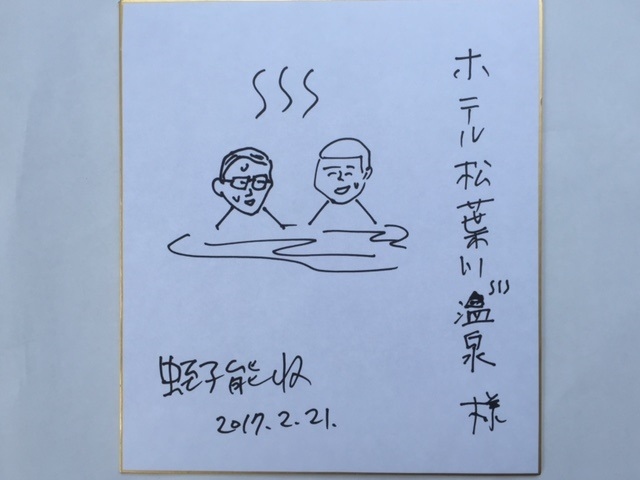 ホテル松葉川温泉様
蛭子能収
2017.2.21.